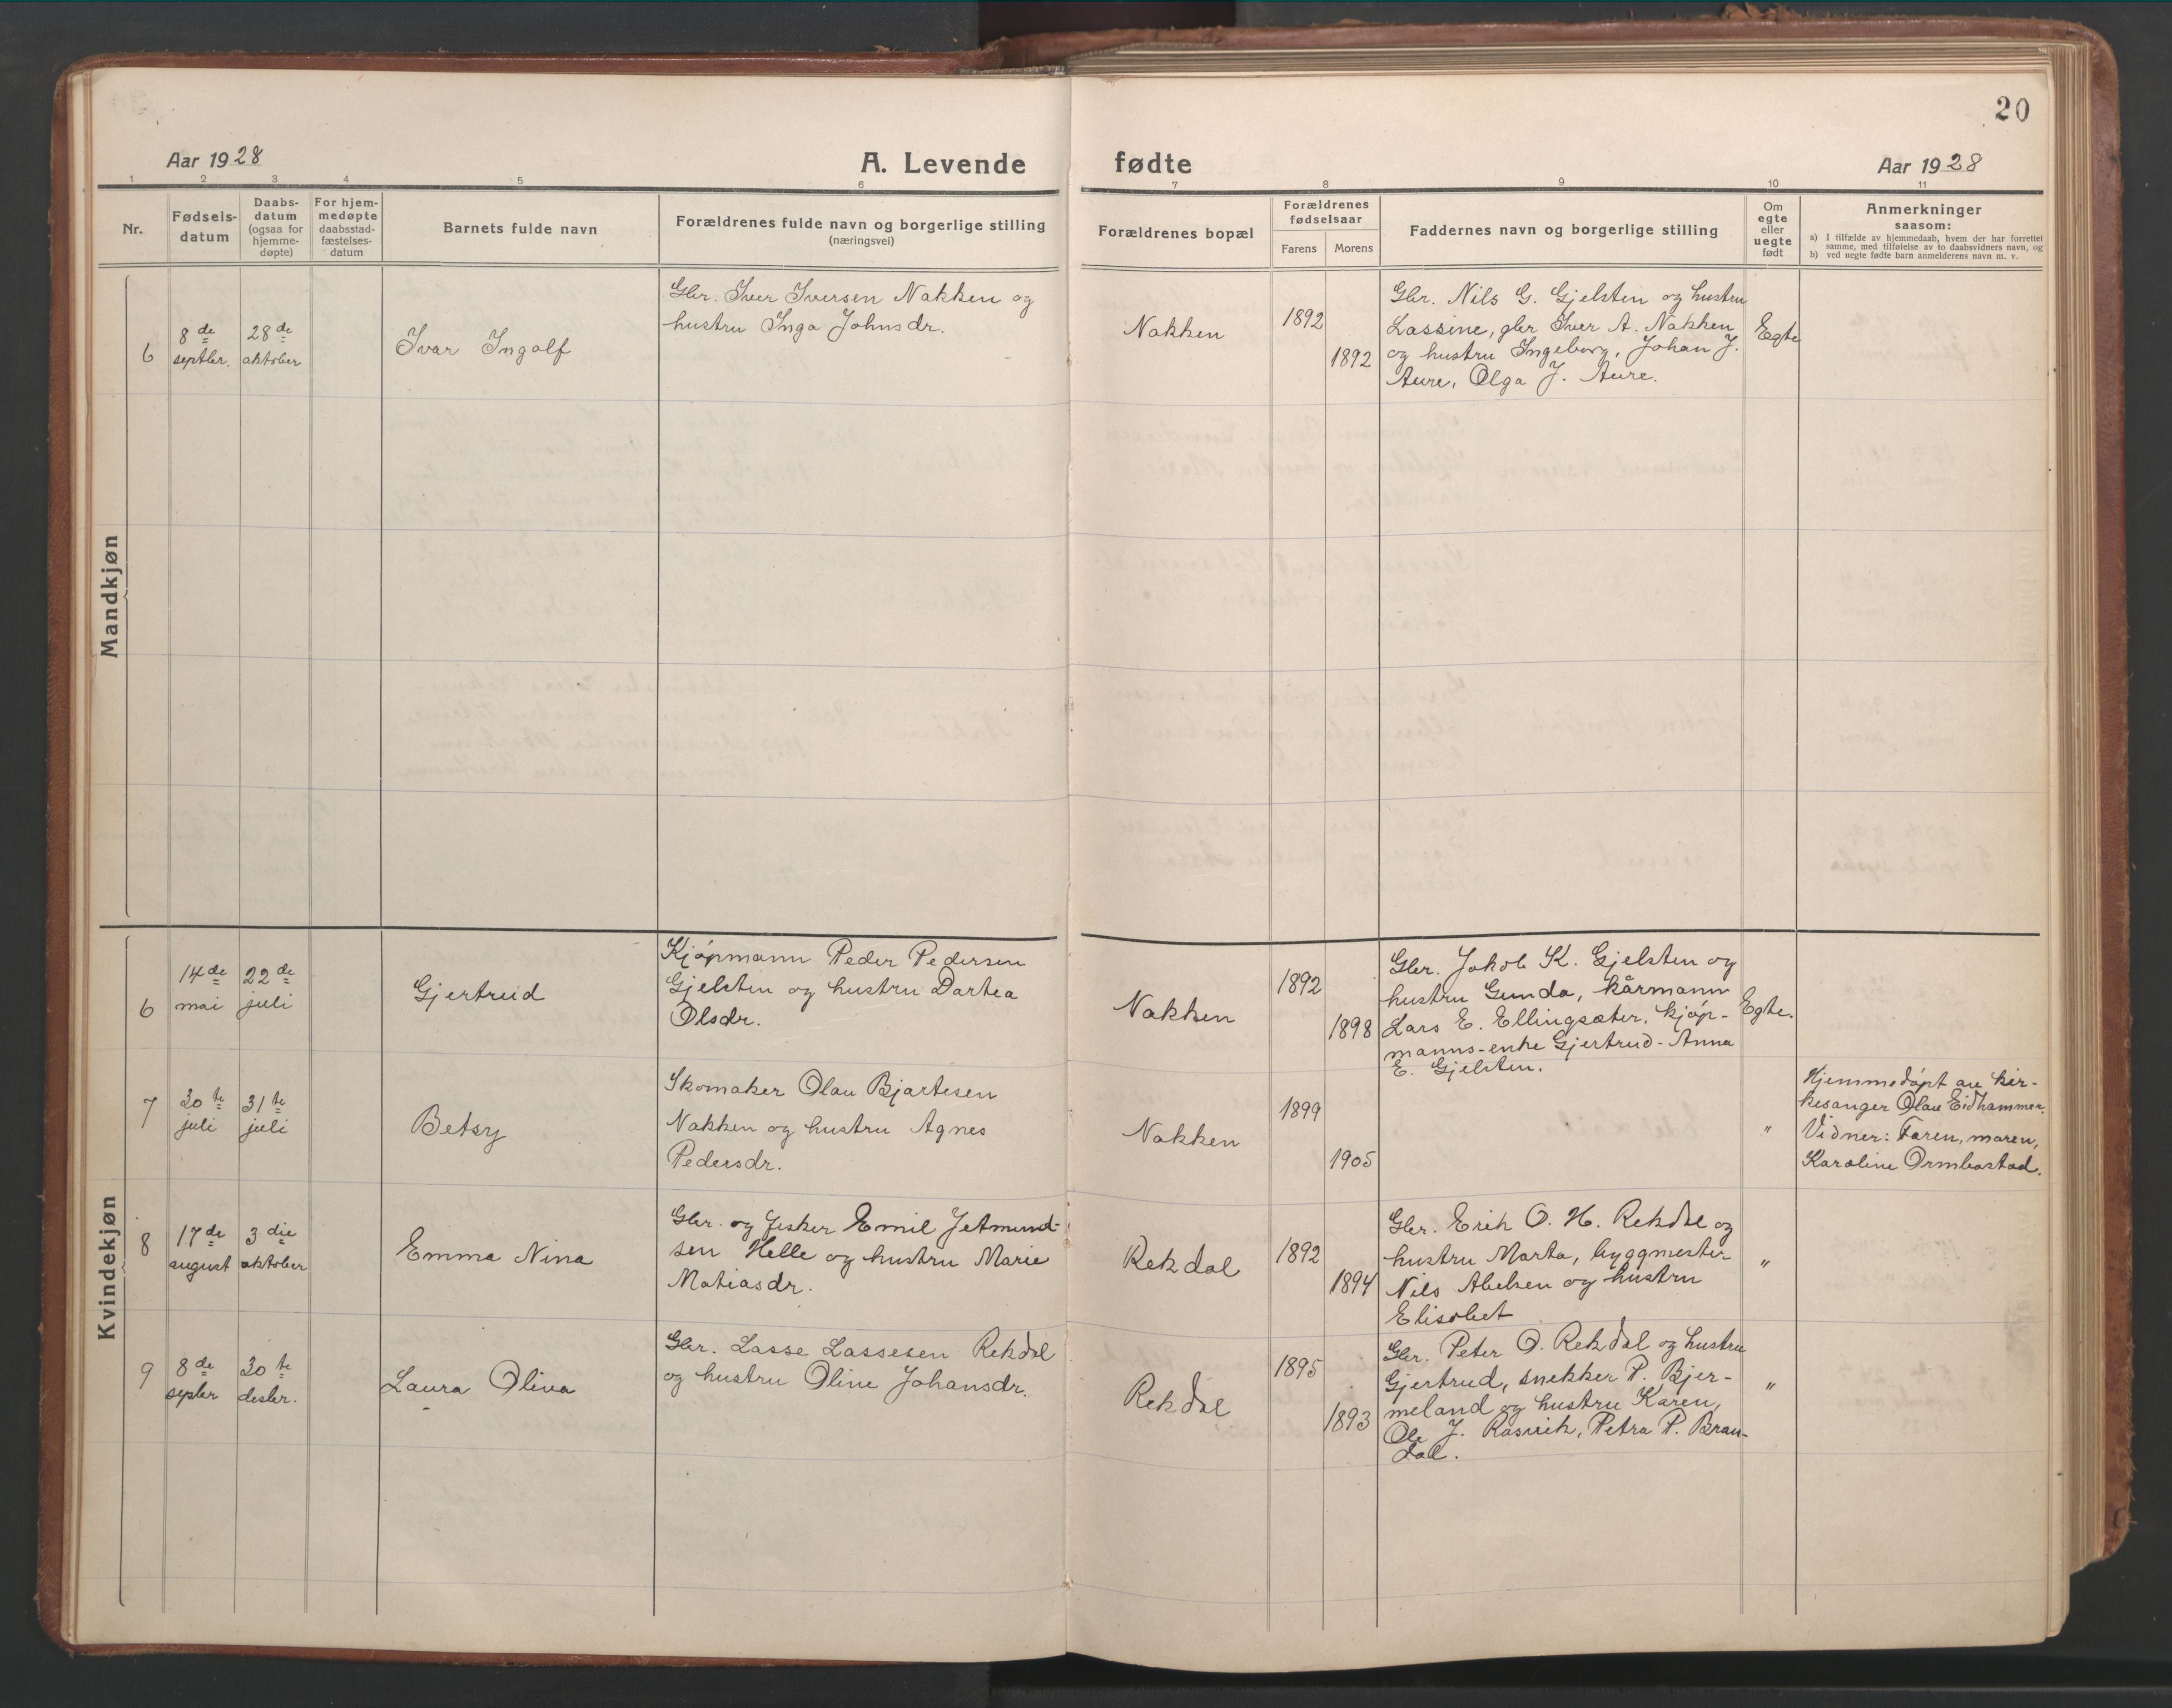 20
Aar 1928
A. Levende
fødte
Aar 1928
1 2 3 4 5 6 7 8 9 10 11
Nr.
Fødsels-
datum
Daabs-
datum
(ogsaa for
hjemme-
døpte)
For hjem-
medøpte
daabsstad-
fæstelses-
datum
Barnets fulde navn
Forældrenes fulde navn og borgerlige stilling
(næringsvei)
Forældrenes bopæl
Forældrenes
fødselsaar
Farens Morens
Faddernes navn og borgerlige stilling
Om
egte
eller
uegte
født
Anmerkninger
saasom:
a) I tilfælde av hjemmedaab, hvem der har forrettet
samme, med tilføielse av to daabsvidners navn, og
b) ved uegte fødte barn anmelderens navn m. v.
Mandkjøn
6
8de
septbr.
28de
oktober
Ivar Ingolf
Gbr. Iver Iversen Nakken og
hustru Inga Johnsdr.
Nakken
1892
1892
Gbr. Nils G. Gjelsten og hustru
Lassine, gbr Iver A. Nakken
og hustru Ingeborg, Johan J.
Aure, Olga J. Aure.
Egte
Kvindekjøn
6
14de
mai
22de
juli
Gjertrud
Kjøpmann Peder Pedersen
Gjelsten og hustru Dortea
Olsdr.
Nakken
1892
1898
Gbr. Jakob K. Gjelsten og
hustru Gunda, kårmann
Lars E. Ellingsæter, kjøp-
manns-enke Gjertrud-Anna
E. Gjelsten.
Egte.
7
30te
juli
31te
juli
Betsy
Skomaker Olau Bjartesen
Nakken og hustru Agnes
Pedersdr.
Nakken
1899
1905
"
Hjemmedøpt av kir-
kesanger Olau Eidhammer.
Vidner: Faren, moren,
Karoline Ormbostad.
8
17de
august
3die
oktober
Emma Nina
Gbr. og fisker Emil Jetmund-
sen Helle og hustru Marie
Matiasdr.
Rekdal
1892
1894
Gbr. Erik O. H. Rekdal og
hustru Marta, byggmester
Nils Abelsen og hustru
Elisabet
"
9
8de
septbr
30te
desbr.
Laura Oliva
Gbr. Lasse Lassesen Rekdal
og hustru Oline Johansdr.
Rekdal
1895
1893
Gbr. Peter O. Rekdal og hustru
Gjertrud, snekker P. Bjer-
meland og hustru Karen,
Ole J. Rasvik, Petra P. Bran-
dal.
"